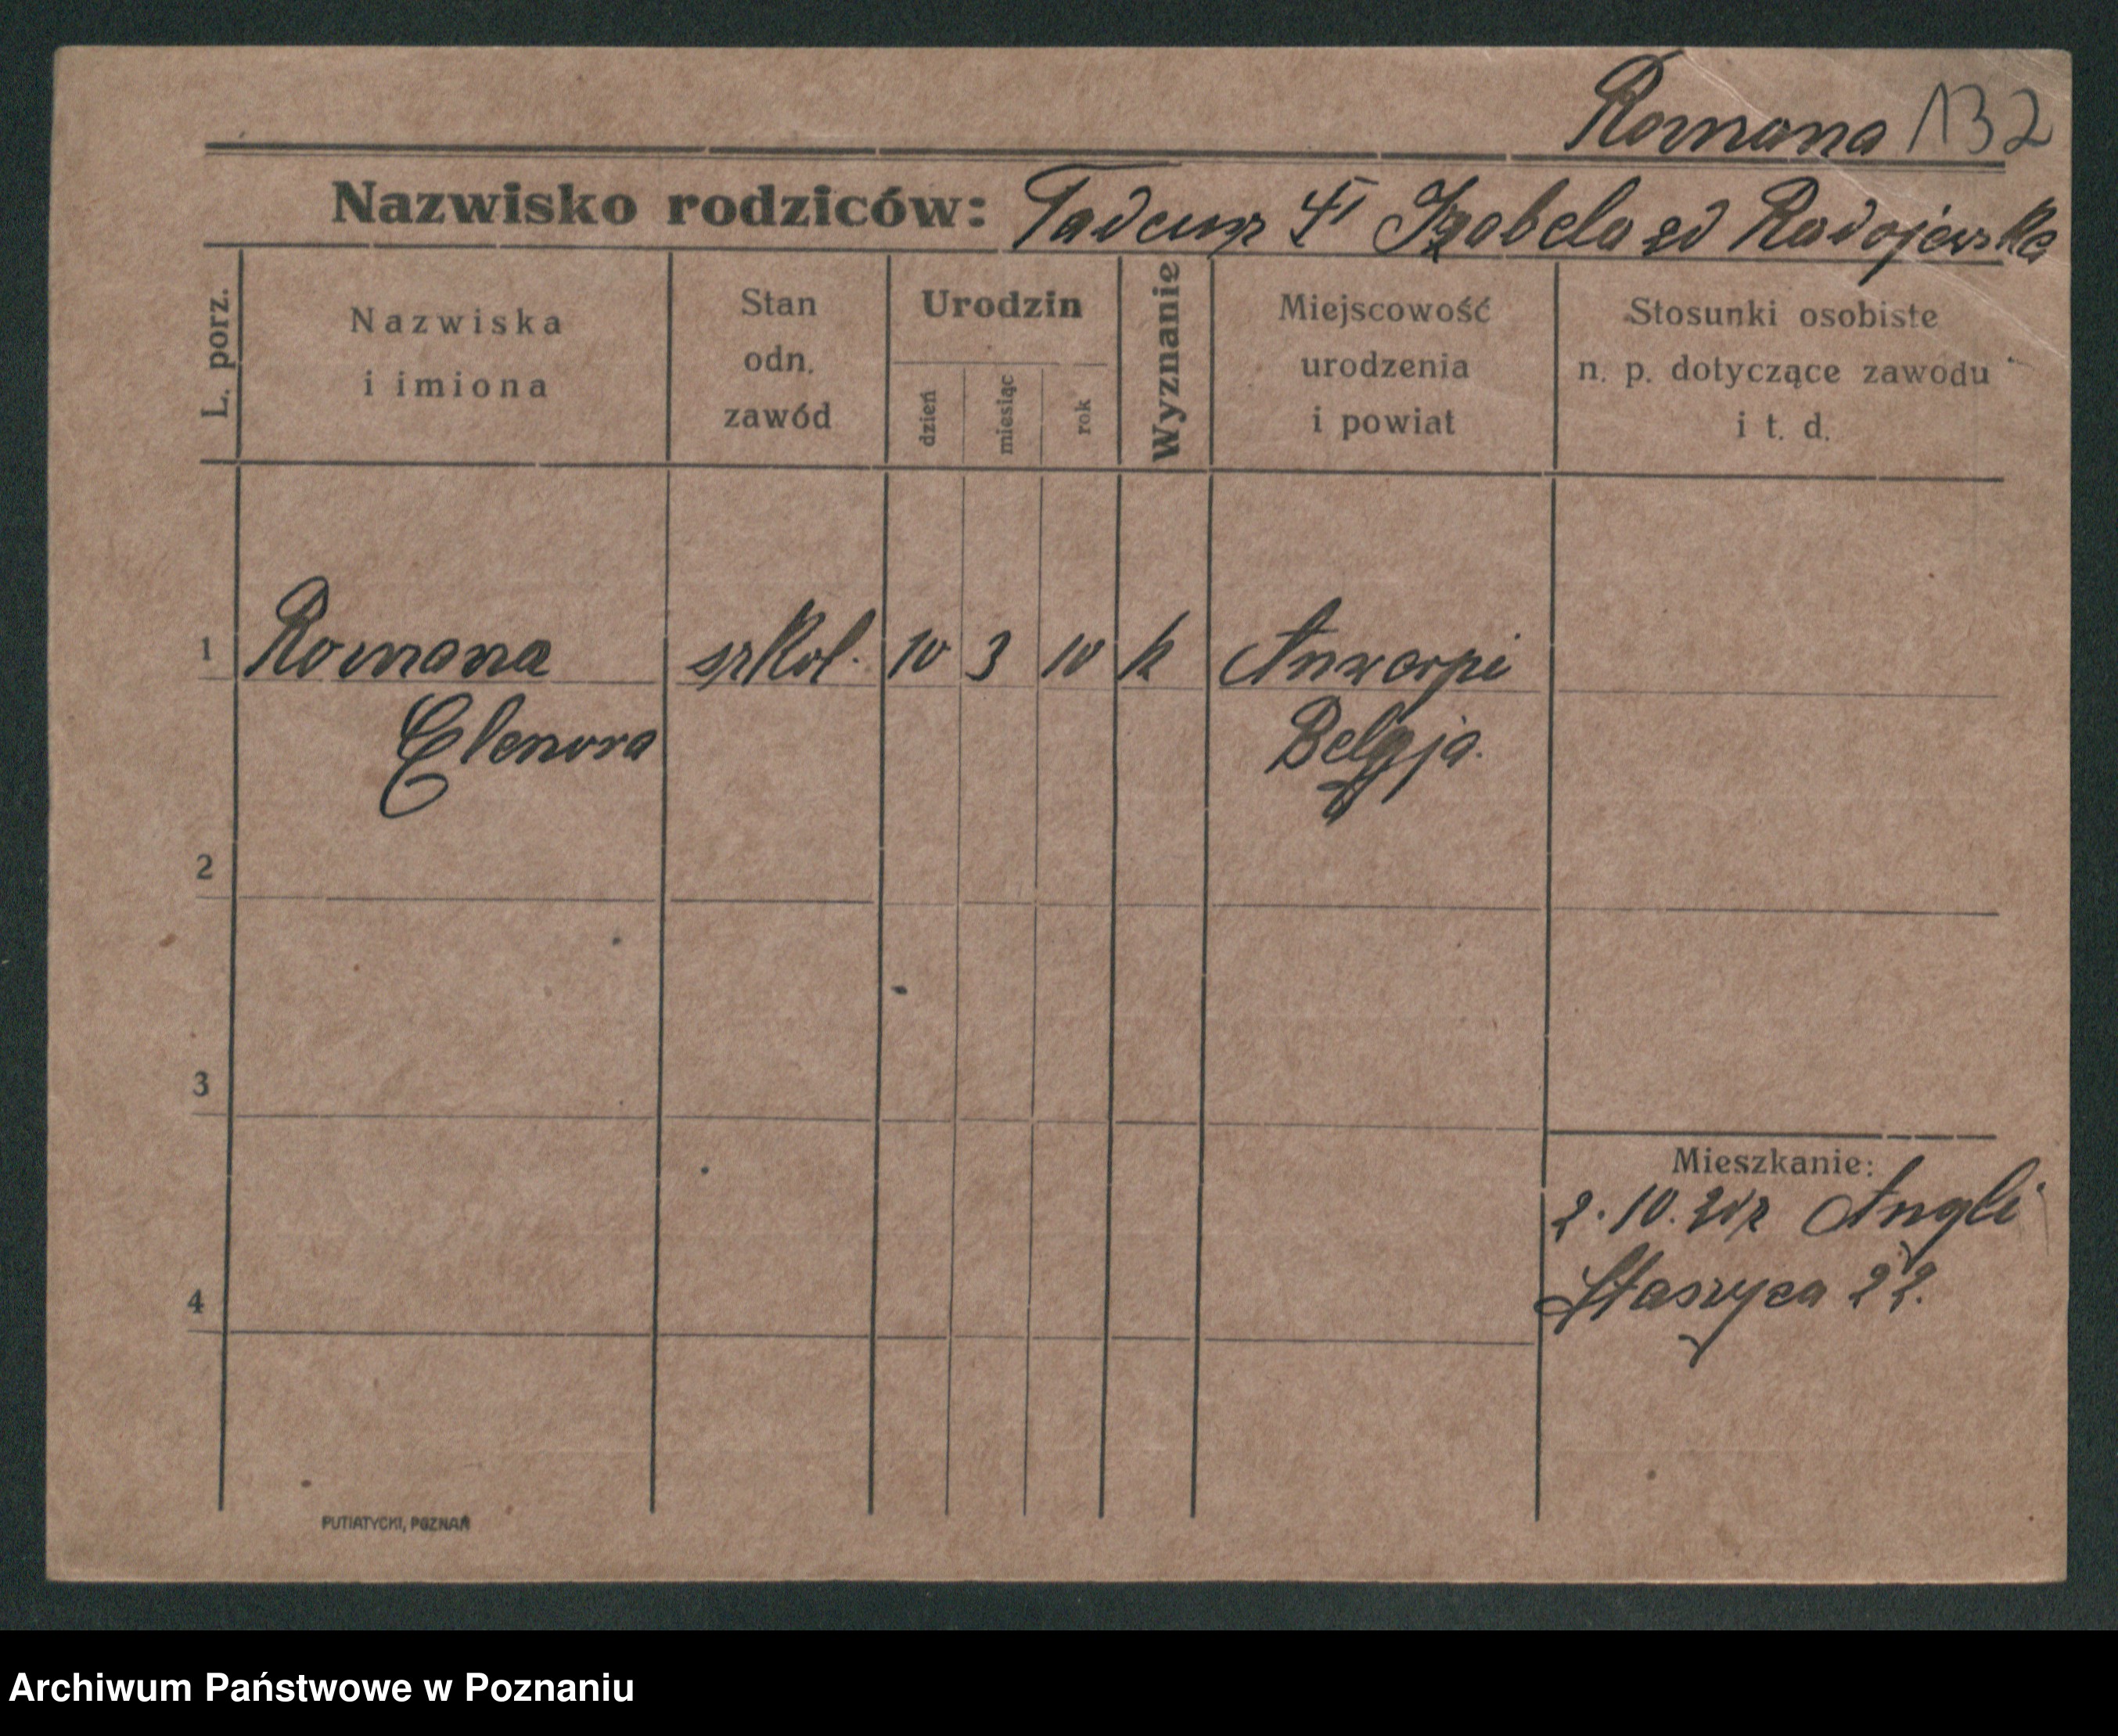 Romana 132
Nazwisko rodziców: Tadeusz Izabela Radojewska
L. porz.
Nazwiska
i imiona
Stan
odn.
zawód
Urodzin
dzień
miesiąc
rok
Wyznanie
Miejscowość
urodzenia
i powiat
Stosunki osobiste
n. p. dotyczące zawodu
i t. d.
1 Romana szkol. 10 3 10 k Anwerpi
Elenora Belgja.
2
3
4
Mieszkanie:
2.10. Angli
Staszyca 22.
PUTIATYCKI, POZNAŃ
Archiwum Państwowe w Poznaniu